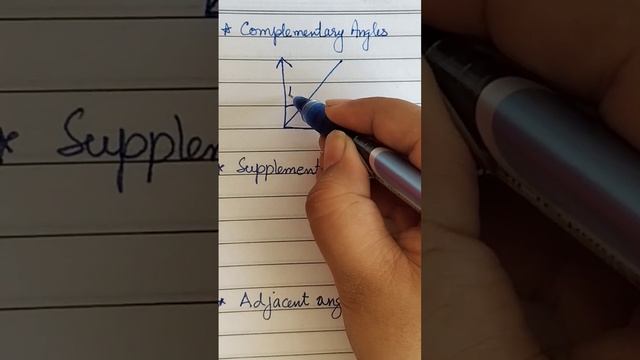 * Complementary Angles
* Supplement
* Adjacent ang